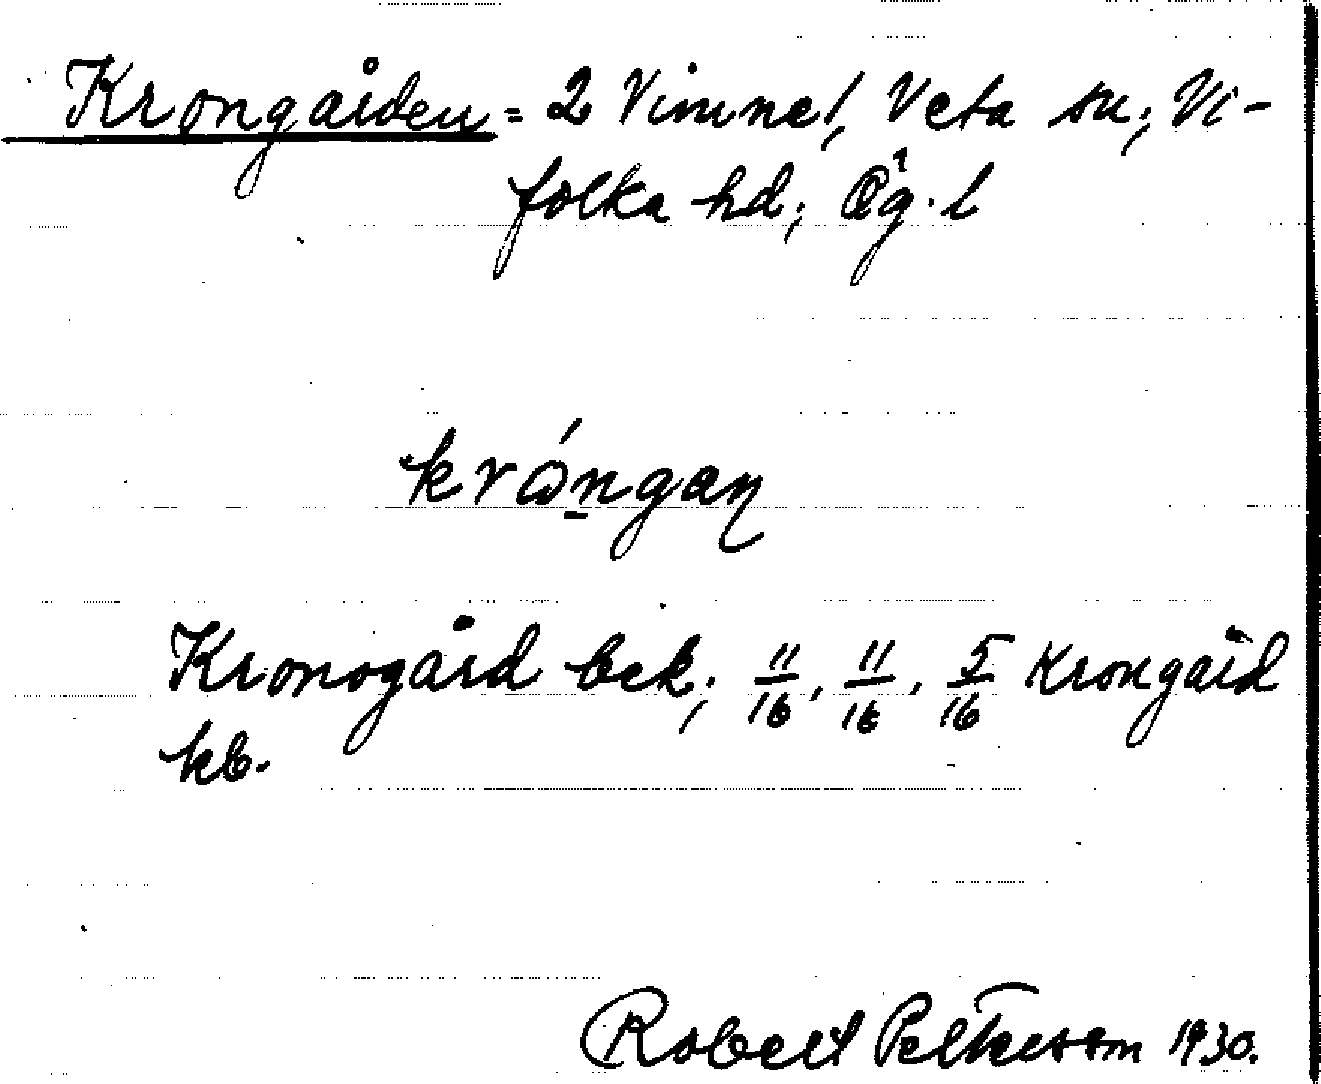 Krongården = 2 Vimne!, Veta sn; Vi-
folka hd; Ög. l
krǿngaṇ
Kronogård bek; 11/16, 11/16, 5/16 Krongård
kb.
Robert Petterson 1930.